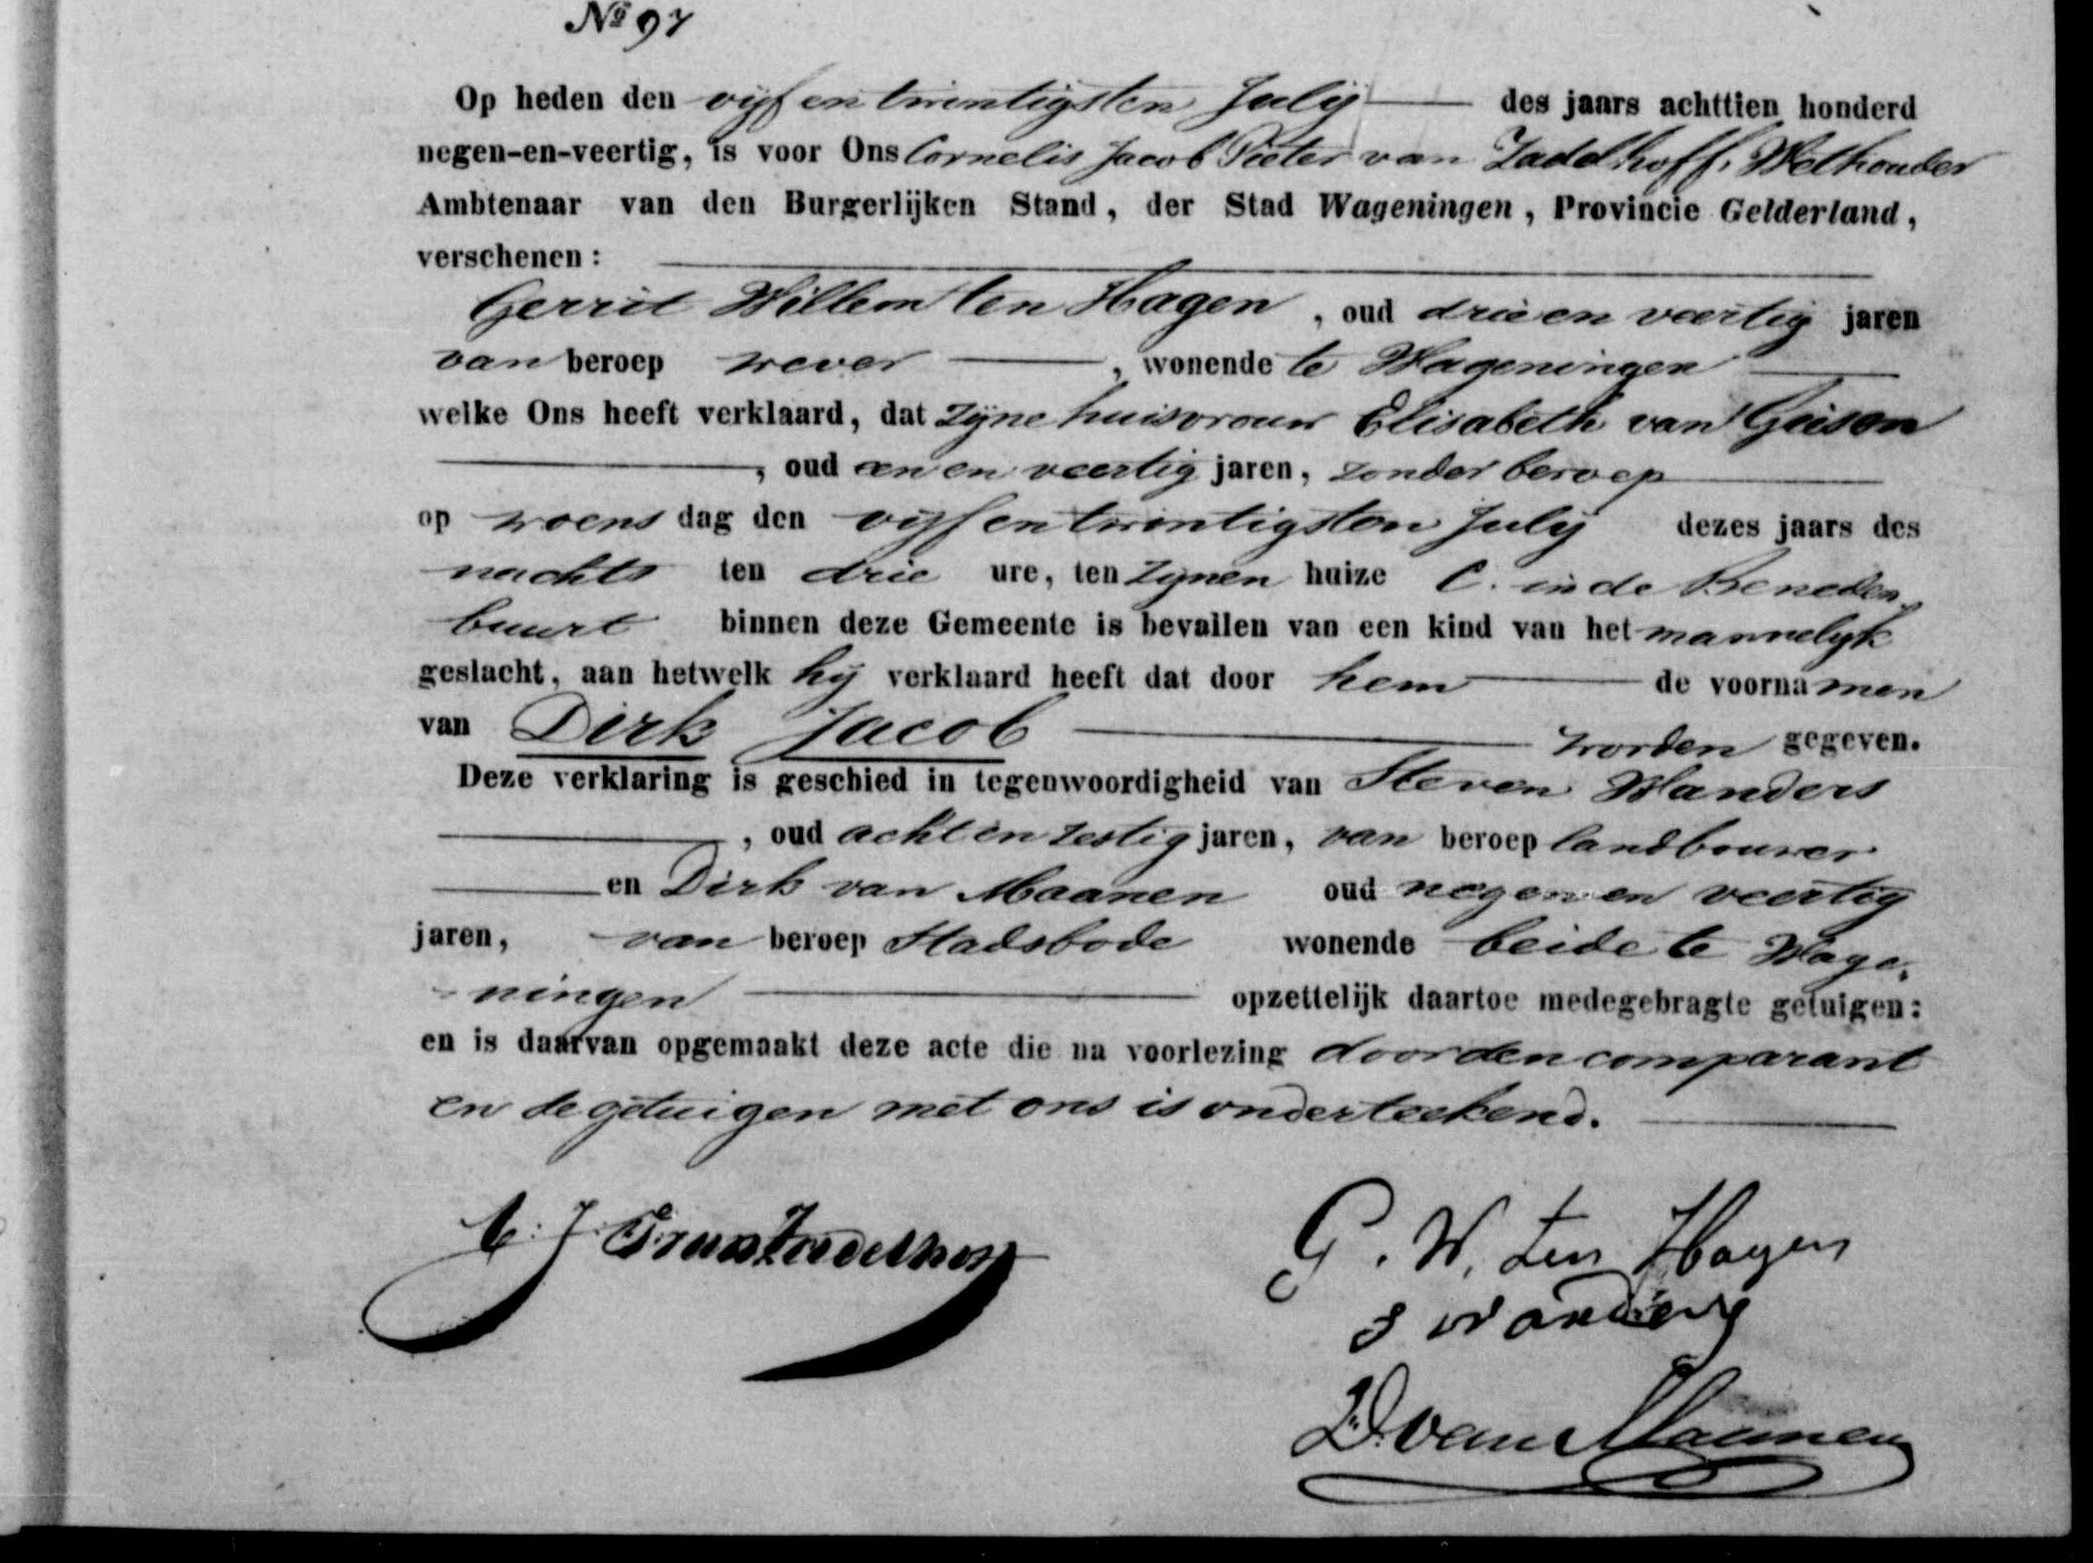 No 97
Op heden den vijf en twintigsten July des jaars achttien honderd
negen-en-veertig, is voor Ons Cornelis Jacob Pieter van Zadelhoff, Wethouder
Ambtenaar van den Burgerlijken Stand, der Stad Wageningen, Provincie Gelderland,
verschenen:
Gerrit Willem ten Hagen, oud drie en veertig jaren
van beroep wever, wonende te Wageningen
welke Ons heeft verklaard, dat zijne huisvrouw Elisabeth van
, oud een en veertig jaren, zonder beroep
op woensdag den vijf en twintigsten July dezes jaars des
nachts ten drie ure, ten zijnen huize C. in de Beneden
buurt binnen deze Gemeente is bevallen van een kind van het mannelijk
geslacht, aan hetwelk hij verklaard heeft dat door hem de voornamen
van Dirk Jacob worden gegeven.
Deze verklaring is geschied in tegenwoordigheid van Steven Wanders
, oud acht en zestig jaren, van beroep landbouwer
en Dirk van Maanen oud negen en veertig
jaren, van beroep Stadsbode wonende beide te Wage-
ningen opzettelijk daartoe medegebragte getuigen:
en is daarvan opgemaakt deze acte die na voorlezing door den comparant
en de getuigen met ons is onderteekend.
C. J. P van Zadelhoff
G. W. ten Hagen
S Wanders
D. van Maanen